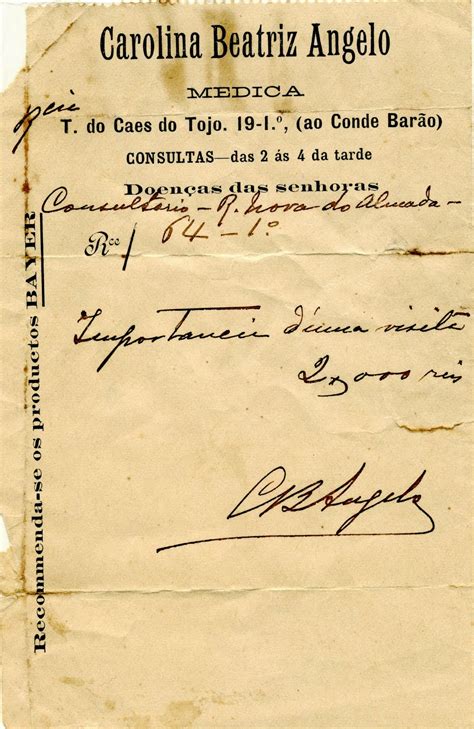 Carolina Beatriz Angelo
MEDICA
T. do Caes do Tojo. 19-1.º, (ao Conde Barão)
CONSULTAS—das 2 ás 4 da tarde
Doenças das senhoras
Consultorio - R. Nova do Almada -
64 - 1º
Rce
Importancia d'uma visita
2$000 reis
CBAngelo
Recommenda-se os productos BAYER